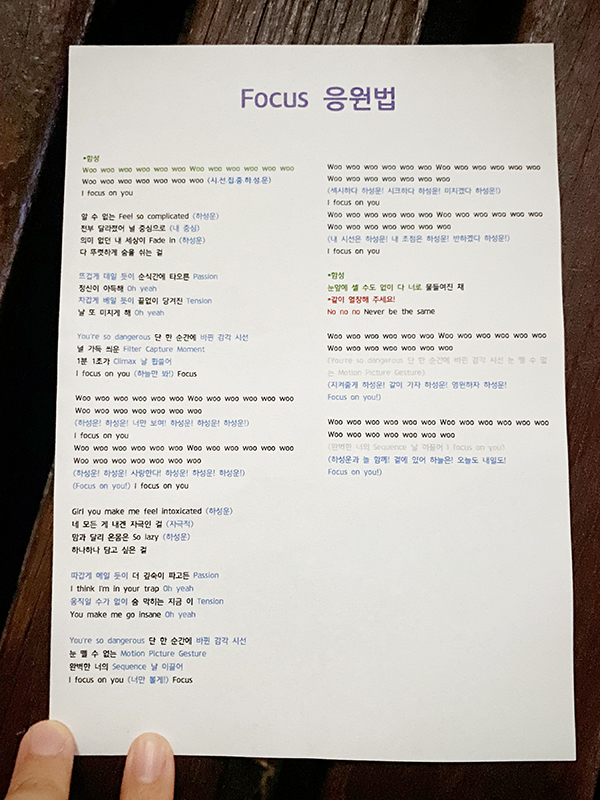 Focus 응원법
*함성
Woo woo woo woo woo woo Woo woo woo woo woo woo
Woo woo woo woo woo woo woo (시.선.집.중.하.성.운)
I focus on you
알 수 없는 Feel so complicated (하성운)
전부 달라졌어 널 중심으로 (내 중심)
의미 없던 내 세상이 Fade in (하성운)
다 뚜렷하게 숨을 쉬는 걸
뜨겁게 데일 듯이 순식간에 타오른 Passion
정신이 아득해 Oh yeah
차갑게 베일 듯이 끝없이 당겨진 Tension
날 또 미치게 해 Oh yeah
You're so dangerous 단 한 순간에 바뀐 감각 시선
널 가득 씌운 Filter Capture Moment
1분 1초가 Climax 날 휩쓸어
I focus on you (하늘만 봐!) Focus
Woo woo woo woo woo woo Woo woo woo woo woo woo
Woo woo woo woo woo woo woo
(하성운! 하성운! 너만 보여! 하성운! 하성운! 하성운!)
I focus on you
Woo woo woo woo woo woo Woo woo woo woo woo woo
Woo woo woo woo woo woo woo
(하성운! 하성운! 사랑한다! 하성운! 하성운! 하성운!)
(Focus on you!) I focus on you
Girl you make me feel intoxicated (하성운)
네 모든 게 내겐 자극인 걸 (자극적)
맘과 달리 온몸은 So lazy (하성운)
하나하나 담고 싶은 걸
따갑게 메일 듯이 더 깊숙이 파고든 Passion
I think I'm in your trap Oh yeah
움직일 수가 없이 숨 막히는 지금 이 Tension
You make me go insane Oh yeah
You're so dangerous 단 한 순간에 바뀐 감각 시선
눈 뗄 수 없는 Motion Picture Gesture
완벽한 너의 Sequence 날 이끌어
I focus on you (너만 볼게!) Focus
Woo woo woo woo woo woo Woo woo woo woo woo woo
Woo woo woo woo woo woo woo
(섹시하다 하성운! 시크하다 하성운! 미치겠다 하성운!)
I focus on you
Woo woo woo woo woo woo Woo woo woo woo woo woo
Woo woo woo woo woo woo woo
(내 시선은 하성운! 내 초점은 하성운! 반하겠다 하성운!)
I focus on you
*함성
눈앞에 셀 수도 없이 다 너로 물들여진 채
*같이 열창해 주세요!
No no no Never be the same
Woo woo woo woo woo woo Woo woo woo woo woo woo
Woo woo woo woo woo woo woo
(You're so dangerous 단 한 순간에 바뀐 감각 시선 눈 뗄 수 없
는 Motion Picture Gesture)
(지켜줄게 하성운! 같이 가자 하성운! 영원하자 하성운!
Focus on you!)
Woo woo woo woo woo woo Woo woo woo woo woo woo
Woo woo woo woo woo woo woo
(완벽한 너의 Sequence 날 이끌어 I focus on you)
(하성운과 늘 함께! 곁에 있어 하늘은! 오늘도 내일도!
Focus on you!)